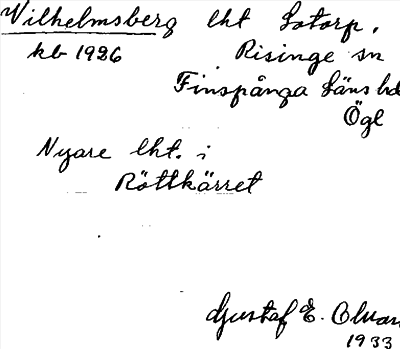 Wilhelmsberg lht Sotorp.
kb 1926 Risinge sn
Finspånga Läns hd
Ögl
Nyare lht. i
Röttkärret
Gustaf E.
1933